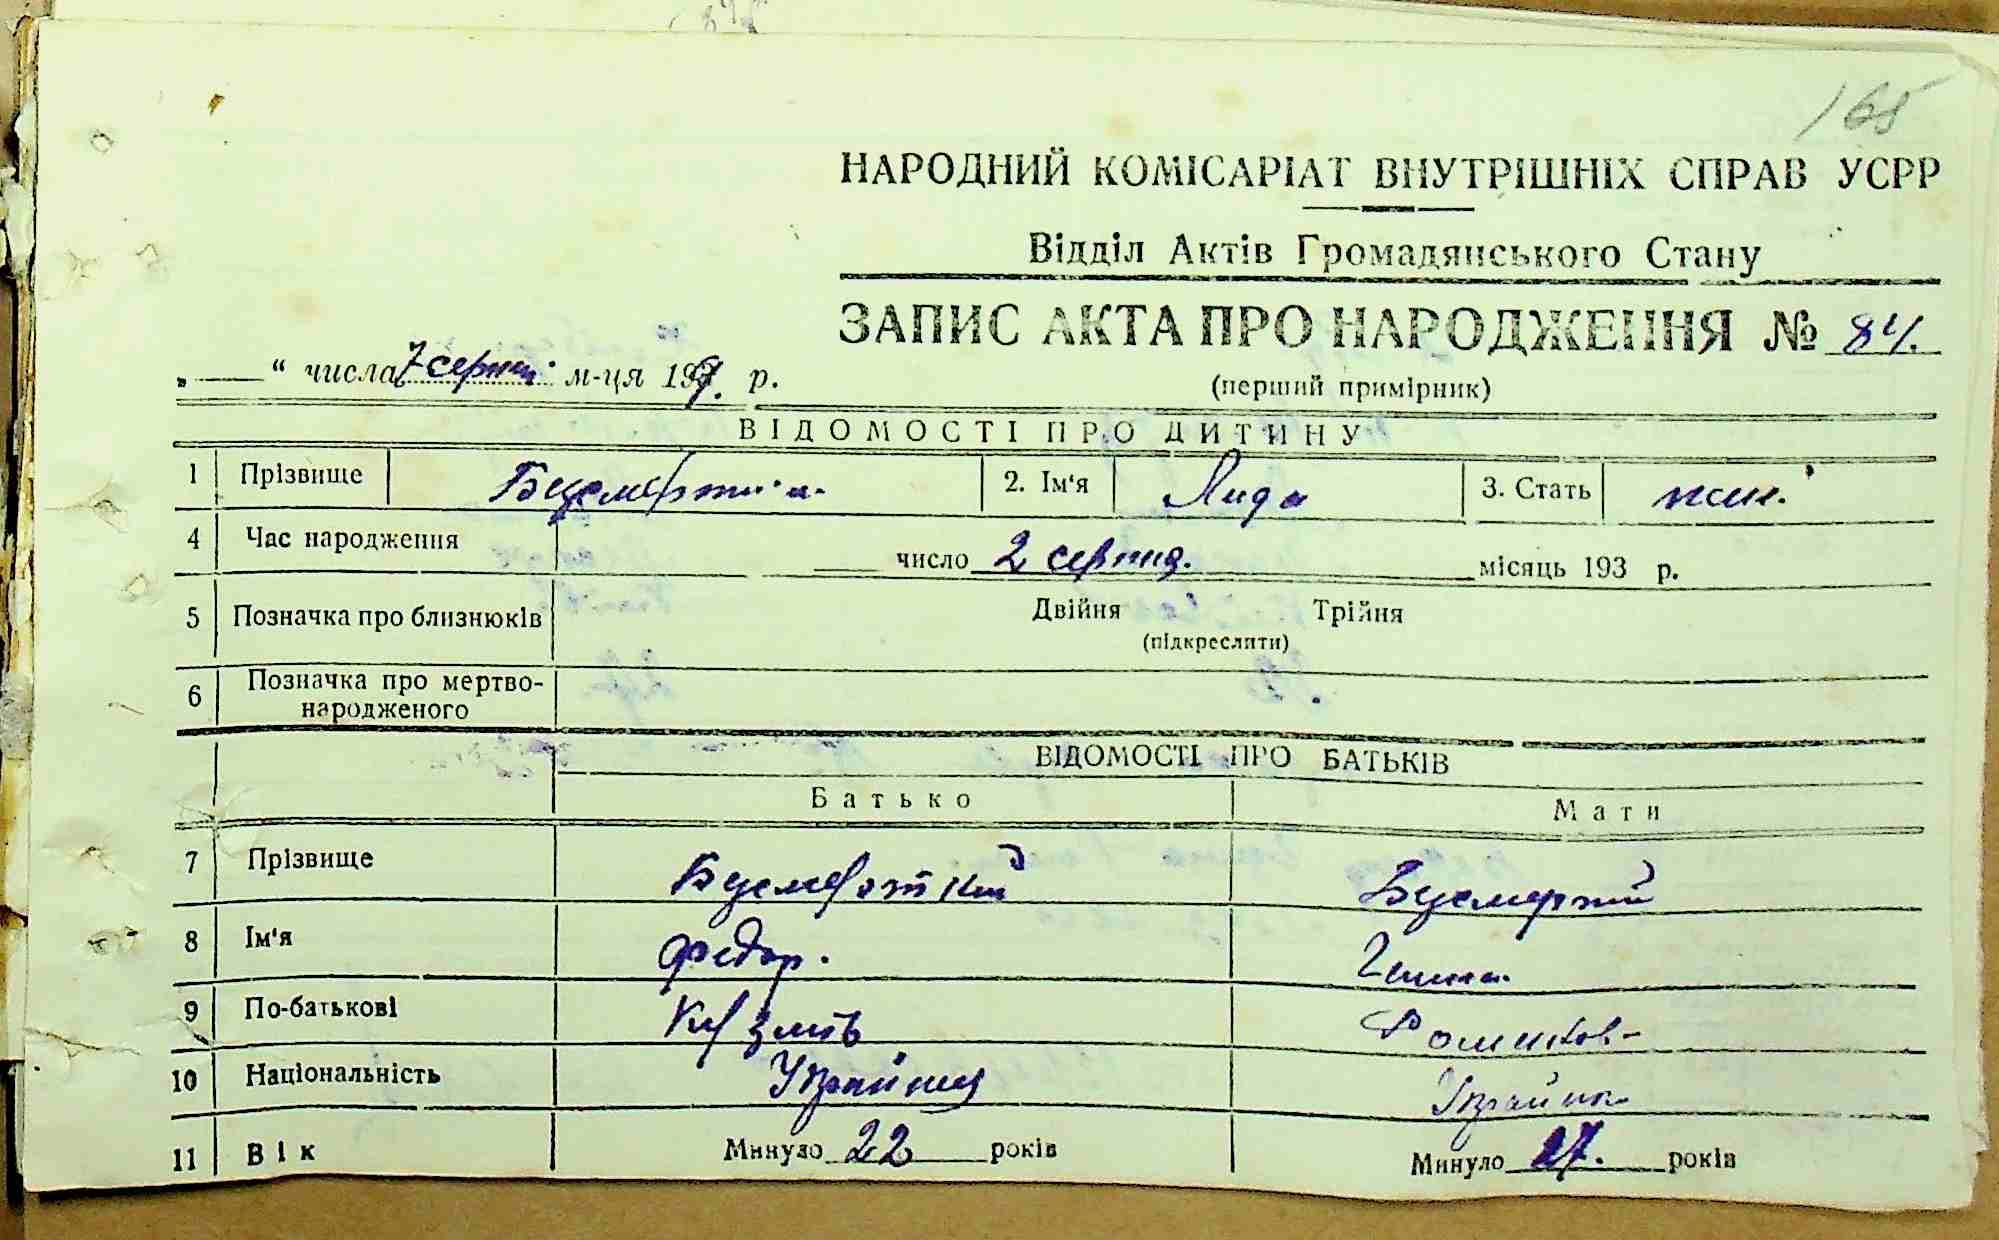 165
НАРОДНИЙ КОМІСАРІАТ ВНУТРІШНІХ СПРАВ УСРР
Відділ Актів Громадянського Стану
ЗАПИС АКТА ПРО НАРОДЖЕННЯ № 84.
(перший примірник)
„ “ числа 7 серпня м-ця 193 р.
ВІДОМОСТІ ПРО ДИТИНУ
1 Прізвище Безсмертна 2. Ім'я Лида 3. Стать жін.
4 Час народження число 2 серпня. місяць 193 р.
5 Позначка про близнюків Двійня Трійня
(підкреслити)
6 Позначка про мертво-
народженого
ВІДОМОСТІ ПРО БАТЬКІВ
Батько Мати
7 Прізвище
8 Ім'я Федор.
9 По-батькові
10 Національність Українец Українка
11 Вік Минуло 22 років Минуло 27. років